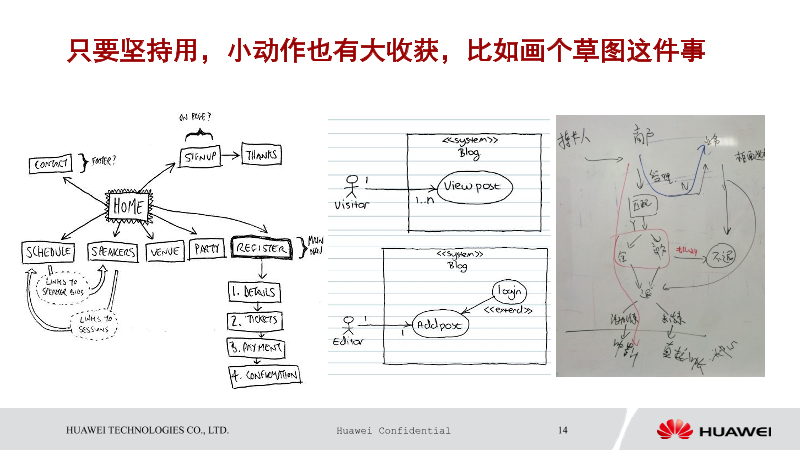 只要坚持用，小动作也有大收获，比如画个草图这件事
ON PAGE?
CONTACT
FOOTER?
SIGNUP
THANKS
HOME
SCHEDULE
SPEAKERS
VENUE
PARTY
REGISTER
MAIN
NAV
LINKS TO
SPEAKER BIOS
LINKS TO
SESSIONS
1. DETAILS
2. TICKETS
3. PAYMENT
4. CONFIRMATION
<<system>>
Blog
View post
Visitor
1
1..n
<<system>>
Blog
login
<<extend>>
Add post
Editor
1
1
商户
N
HUAWEI TECHNOLOGIES CO., LTD.
Huawei Confidential
14
HUAWEI